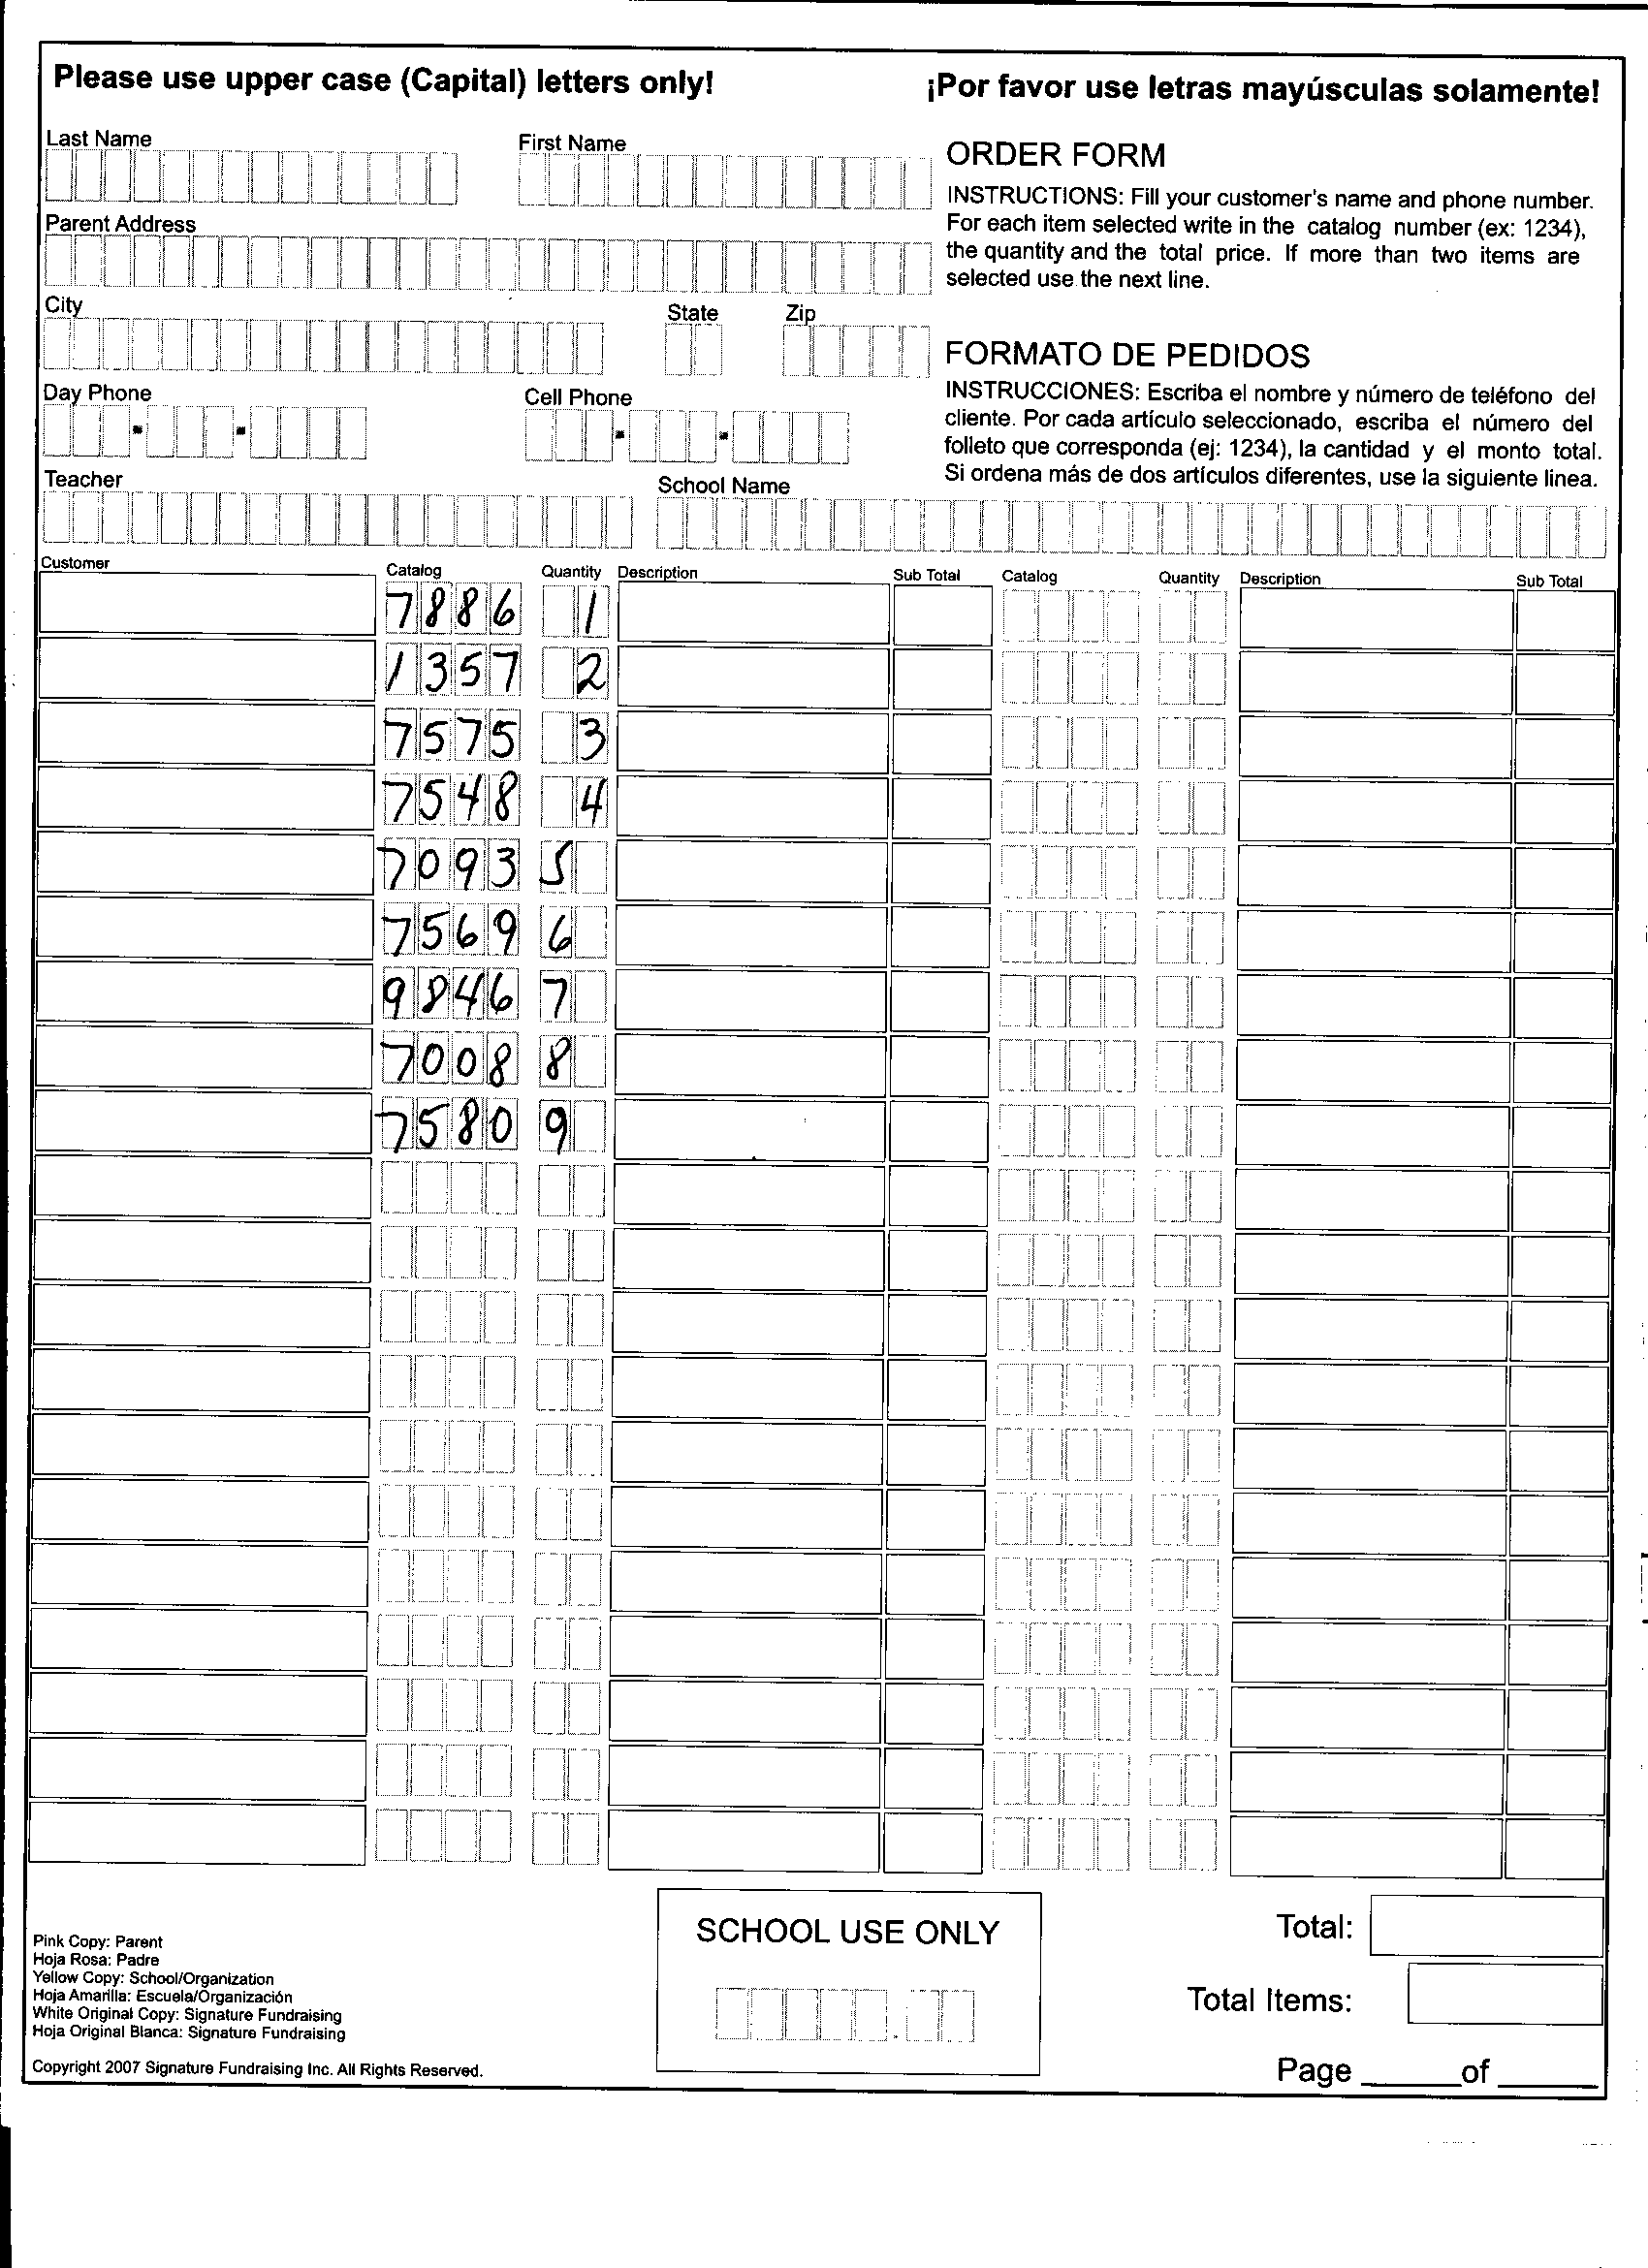 Please use upper case (Capital) letters only! ¡Por favor use letras mayúsculas solamente!
Last Name First Name
ORDER FORM
INSTRUCTIONS: Fill your customer's name and phone number.
For each item selected write in the catalog number (ex: 1234),
the quantity and the total price. If more than two items are
selected use the next line.
Parent Address
City State Zip
FORMATO DE PEDIDOS
INSTRUCCIONES: Escriba el nombre y número de teléfono del
cliente. Por cada artículo seleccionado, escriba el número del
folleto que corresponda (ej: 1234), la cantidad y el monto total.
Si ordena más de dos artículos diferentes, use la siguiente linea.
Day Phone Cell Phone
Teacher School Name
Customer Catalog Quantity Description Sub Total Catalog Quantity Description Sub Total
7886 1
1357 2
7575 3
7548 4
7093 5
7569 6
9846 7
7008 8
7580 9
Pink Copy: Parent
Hoja Rosa: Padre
Yellow Copy: School/Organization
Hoja Amarilla: Escuela/Organización
White Original Copy: Signature Fundraising
Hoja Original Blanca: Signature Fundraising
Copyright 2007 Signature Fundraising Inc. All Rights Reserved.
SCHOOL USE ONLY
Total:
Total Items:
Page ______of ______